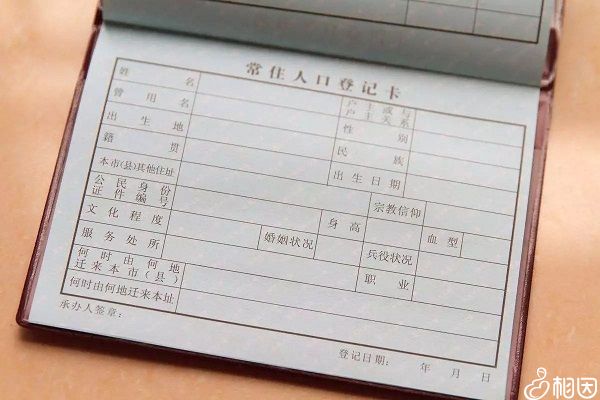 常住人口登记卡
姓名 户主或与户主关系
曾用名 性别
出生地 民族
籍贯 出生日期
本市(县)其他住址 宗教信仰
公民身份证件编号 身高 血型
文化程度 婚姻状况 兵役状况
服务处所 职业
何时由何地迁来本市(县)
何时由何地迁来本址
承办人签章：
登记日期： 年 月 日
相因